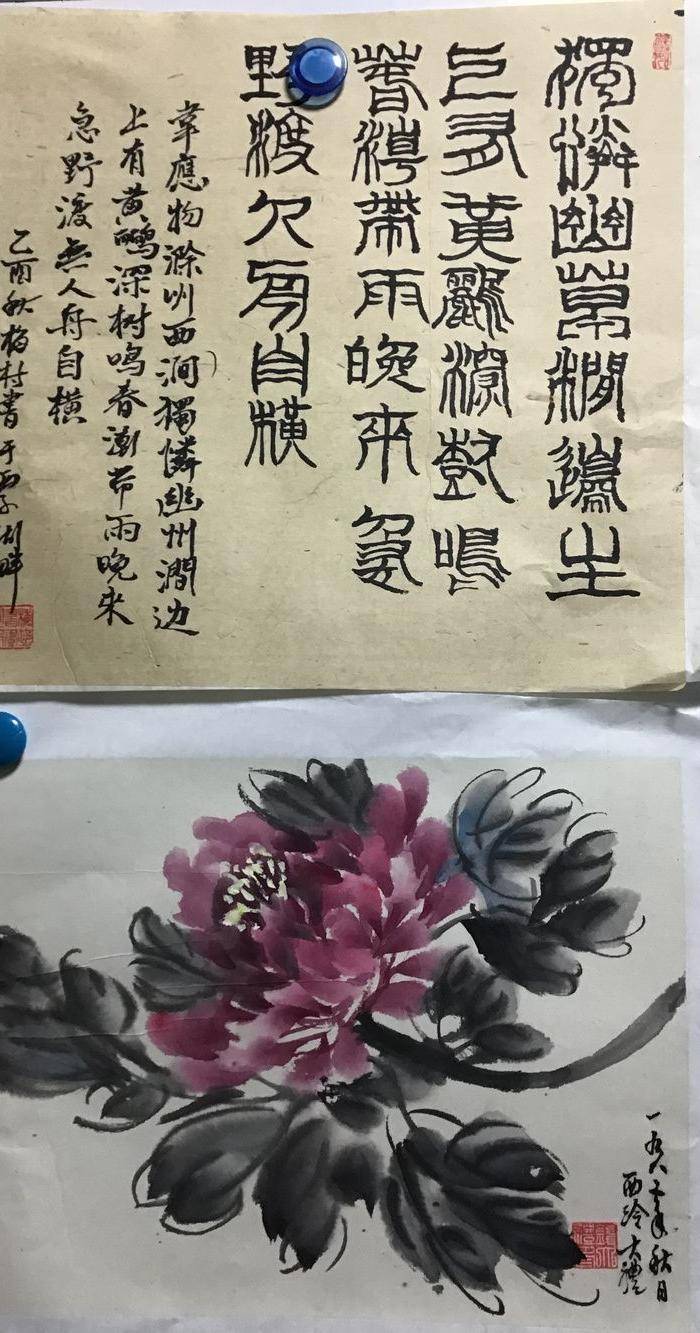 獨憐幽草澗邊生
上有黃鸝深樹鳴
春潮帶雨晚來急
野渡舟自橫
韋應物滁州西澗獨憐幽州澗边
上有黄鸝深树鳴春潮带雨晚来
急野渡无人舟自横
乙酉秋梅村書于西子湖畔
一九八年秋日
西泠大禮